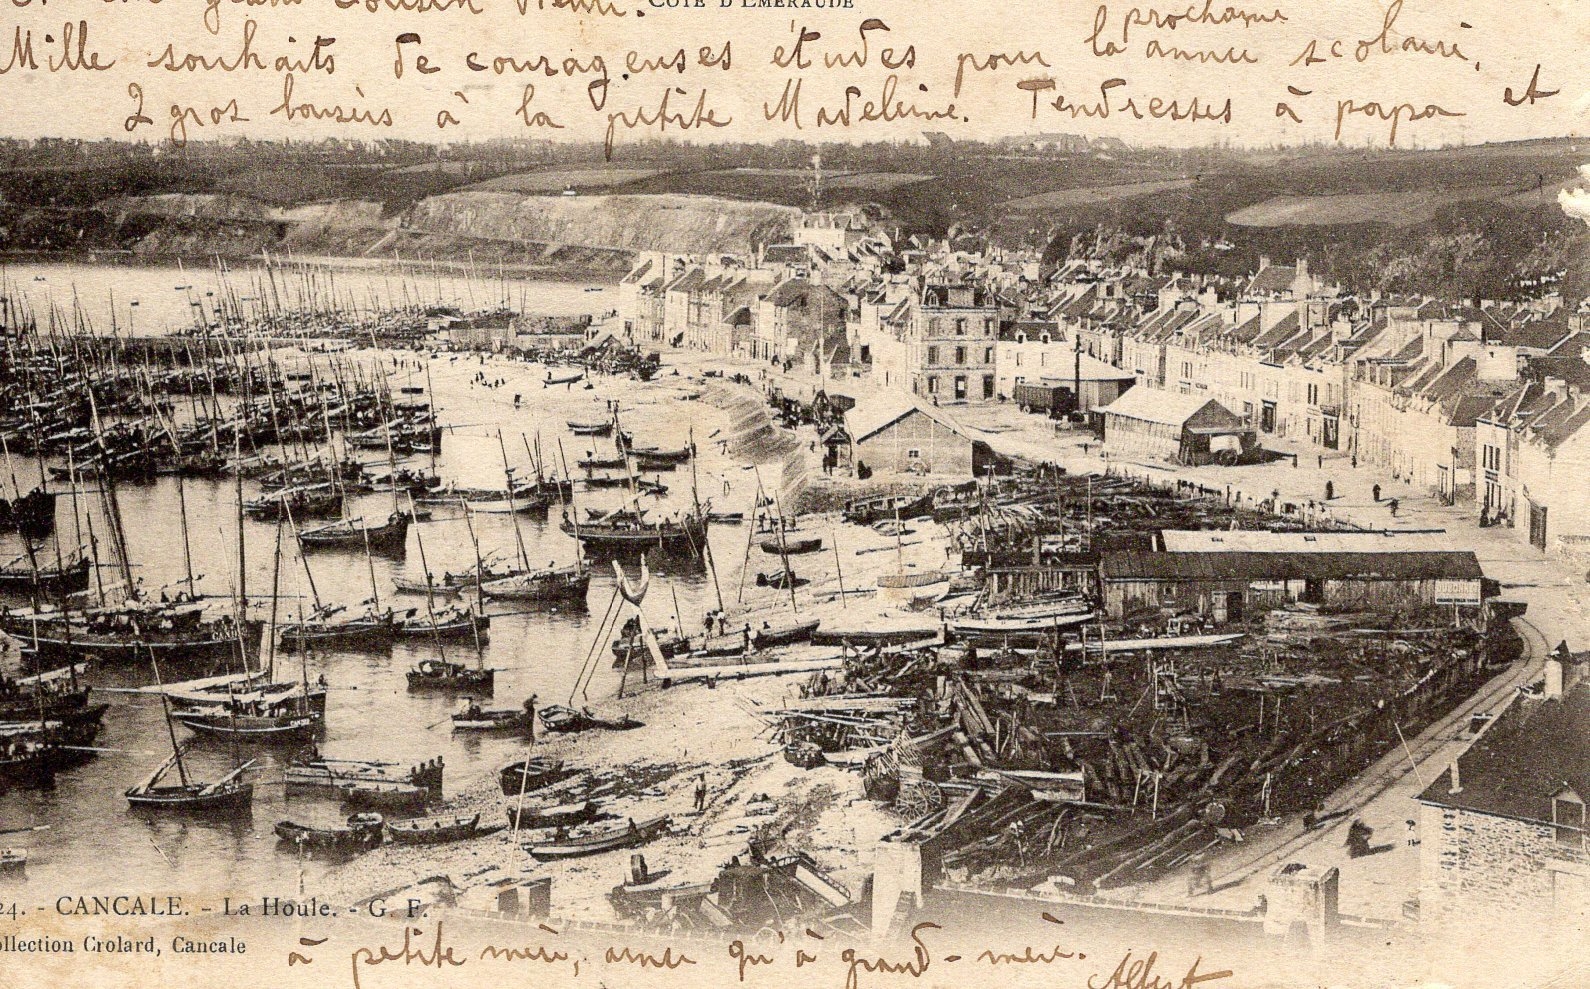 grand cousin Henri. CÔTE D'ÉMERAUDE
Mille souhaits de courageuses études pour la prochaine année scolaire,
2 gros baisers à la petite Madeleine. Tendresses à papa et
24. - CANCALE. - La Houle. - G. F.
ollection Crolard, Cancale
à petite mère, ainsi qu'à grand-mère.
Albert